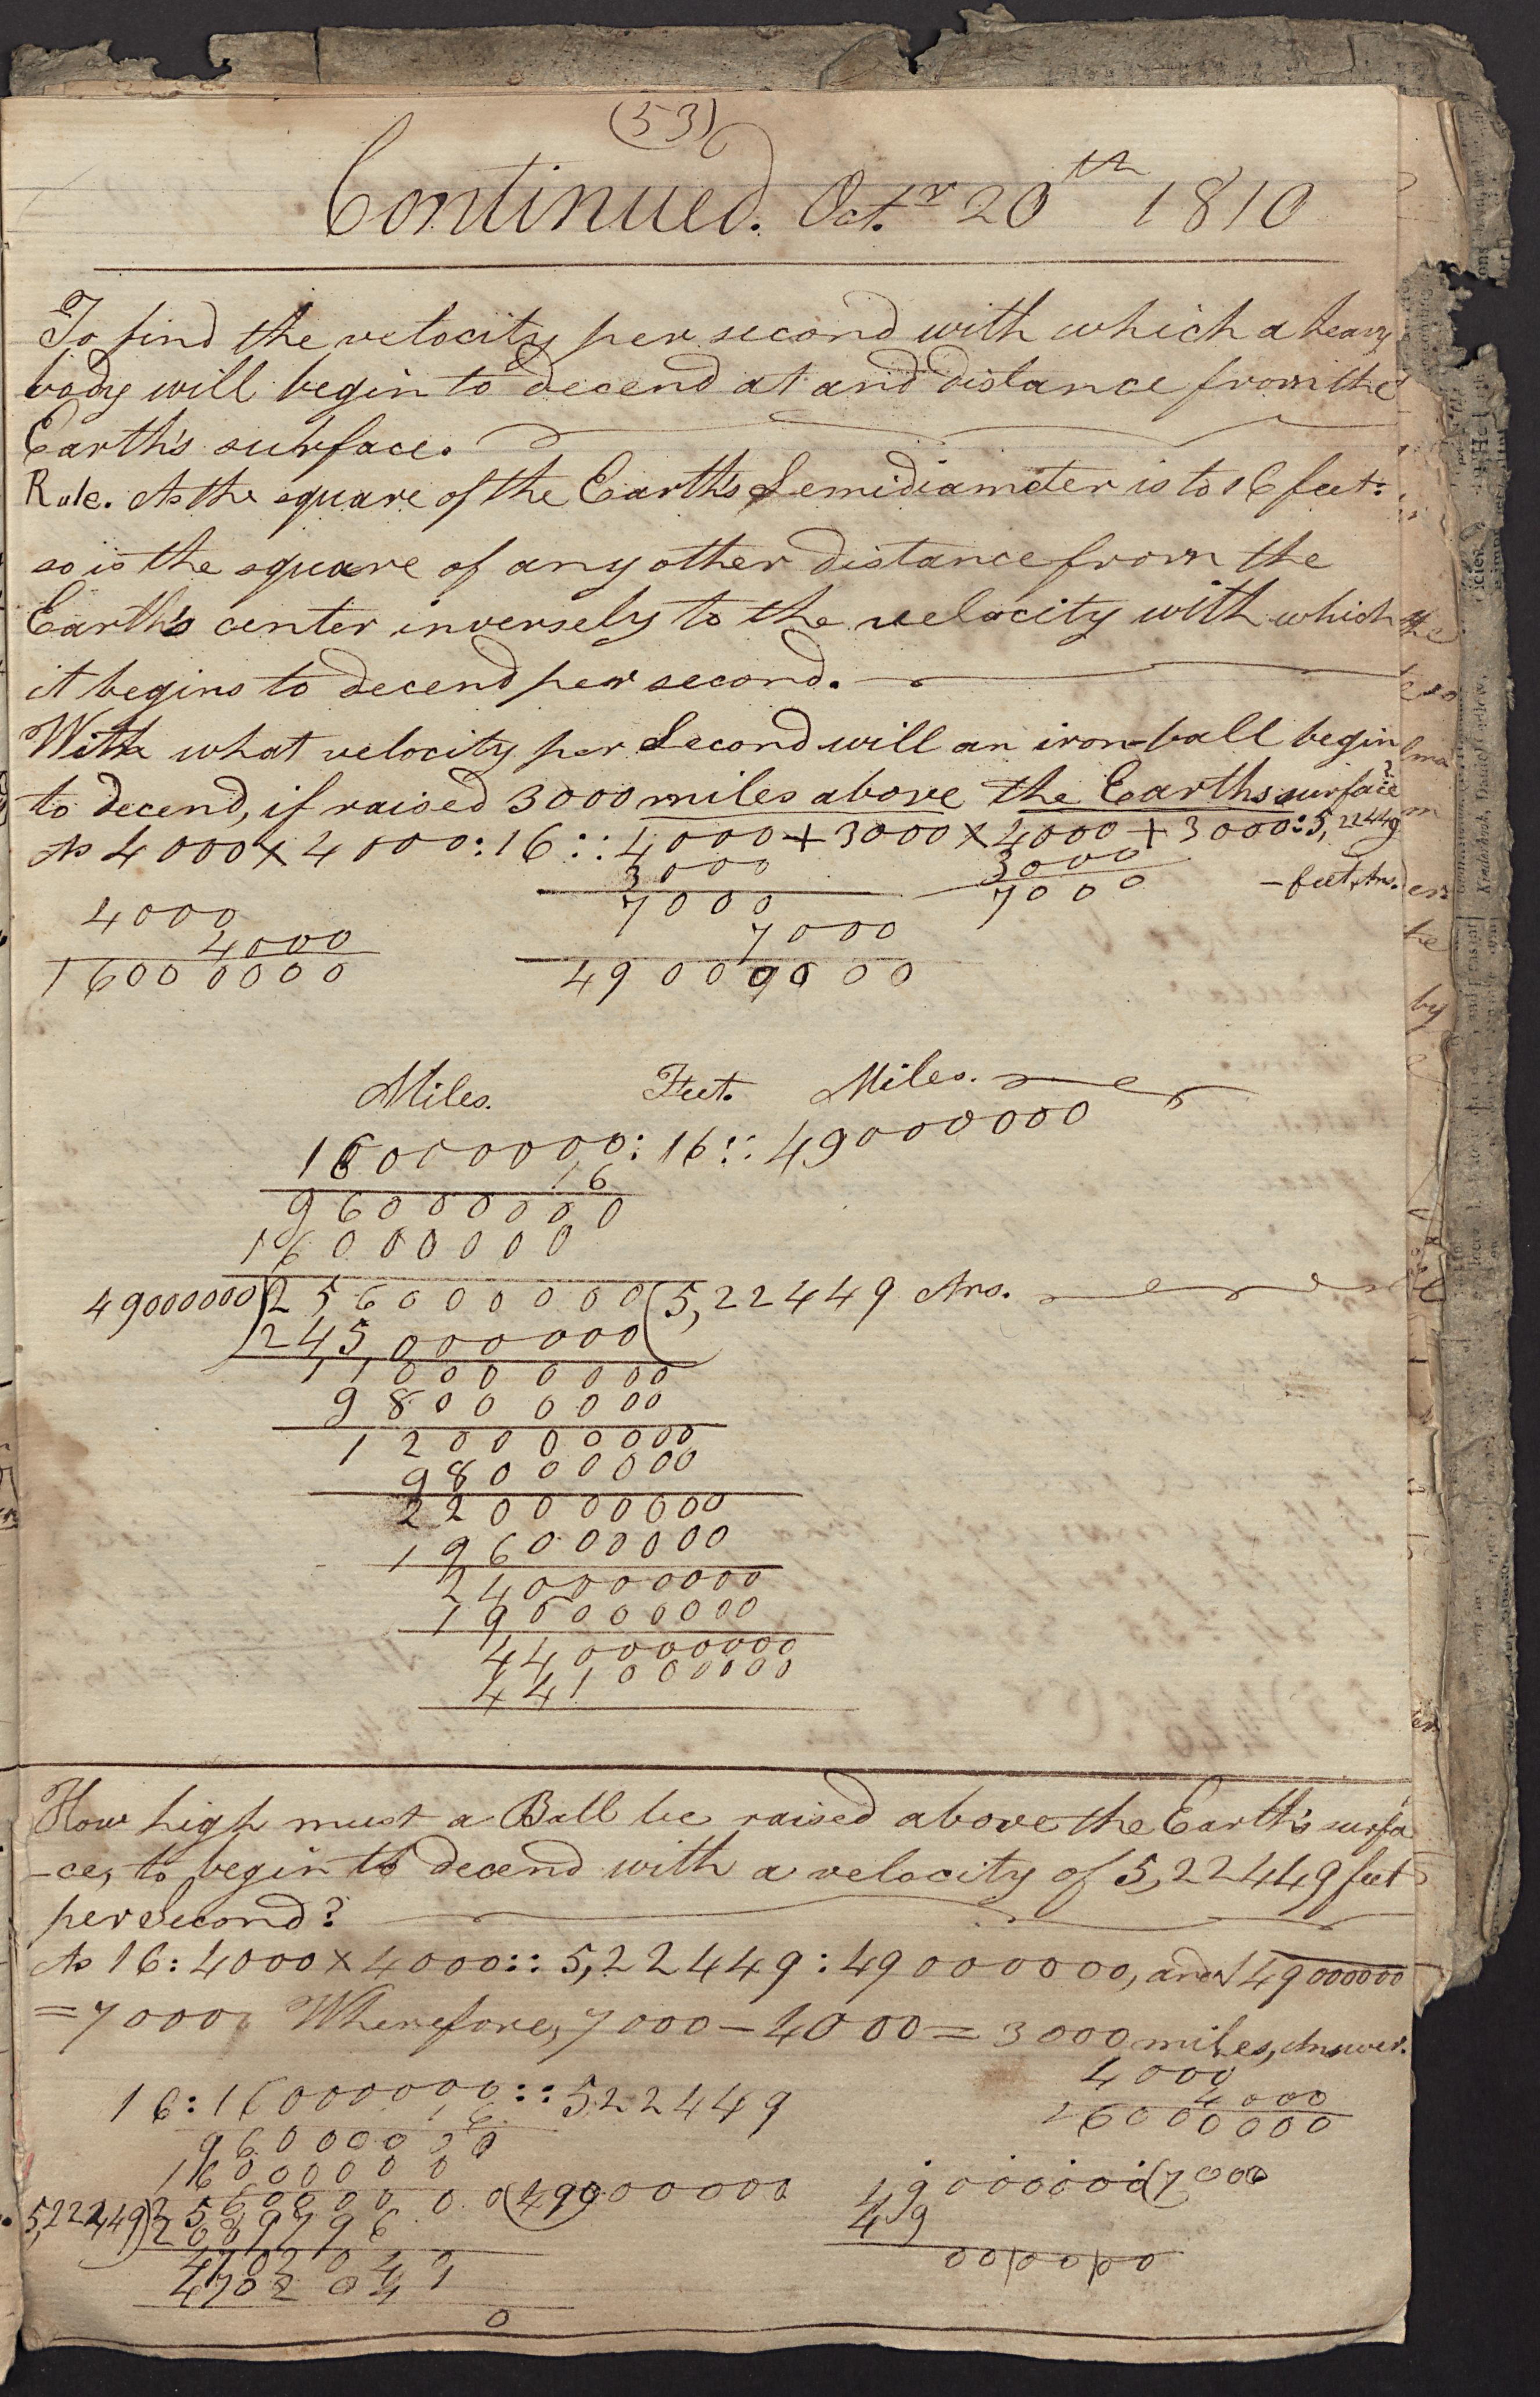 (53)
Continued. Oct.r 20th 1810
To find the velocity per second with which a heavy
body will begin to decend at and distance from the
Earth's surface.
Rule. As the square of the Earth's Semidiameter is to 16 feet:
so is the square of any other distance from the
Earth's center inversely to the velocity with which
it begins to decend per second.
With what velocity per Second will an iron-ball begin
to decend, if raised 3000 miles above the Earths surface?
As 4000 x 4000 : 16 :: 4000 + 3000 x 4000 + 3000 : 5,22449
3000 3000 - feet, Ans.
7000 7000
4000 7000
4000
16000000 49000000
Miles. Feet. Miles.
16000000 : 16 :: 49000000
16
96000000
16000000
49000000)256000000(5,22449 Ans.
245000000
110000000
98000000
120000000
98000000
220000000
196000000
240000000
190000000
440000000
441000000
How high must a Ball be raised above the Earth's surfa
-ce, to begin to decend with a velocity of 5,22449 feet
per second?
As 16 : 4000 x 4000 :: 5,22449 : 49000000, and √49000000
= 7000. Wherefore, 7000 - 4000 = 3000 miles, Answer.
16 : 16000000 :: 522449 4000
16 4000
96000000 16000000
16000000
5,22449)256000000(49000000 49000000(7000
2089796 49
4702041 000000
4702041
0